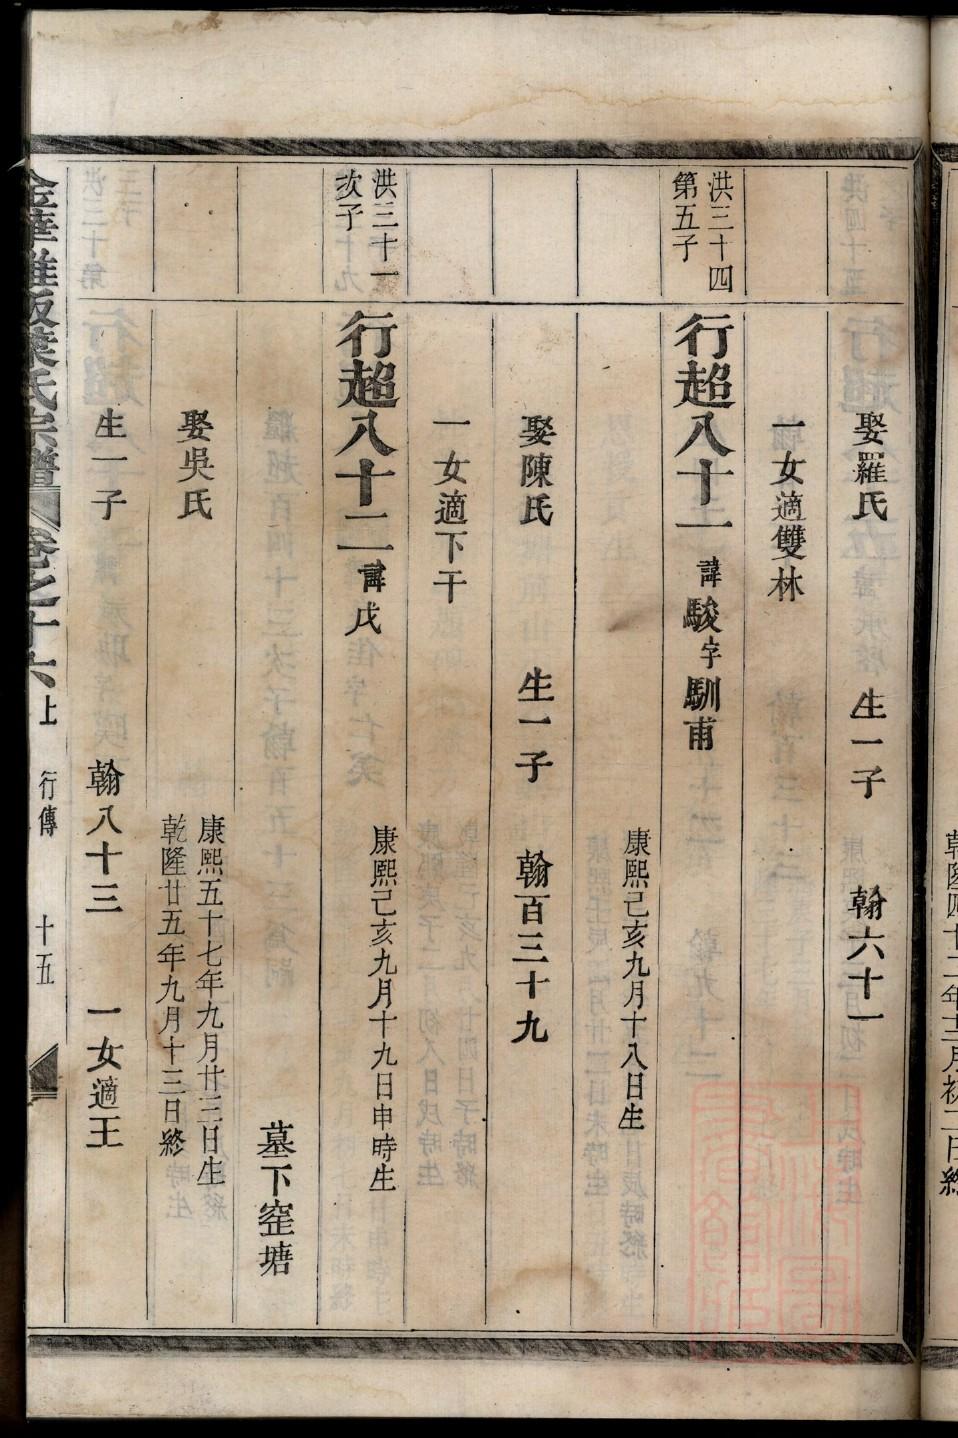 娶羅氏　生一子　翰六十一
一女適雙林
洪三十四
第五子
行超八十一　諱駿字馴甫
康熙己亥九月十八日生
娶陳氏　生一子　翰百三十九
一女適下干
洪三十一
次子
行超八十二　諱戊
康熙己亥九月十九日申時生
墓下窑塘
娶吳氏
康熙五十七年九月廿三日生
乾隆廿五年九月十三日終
生一子　翰八十三　一女適王
葉氏宗譜　卷之十六上　行傳　十五
乾隆四十二年十二月初二日終